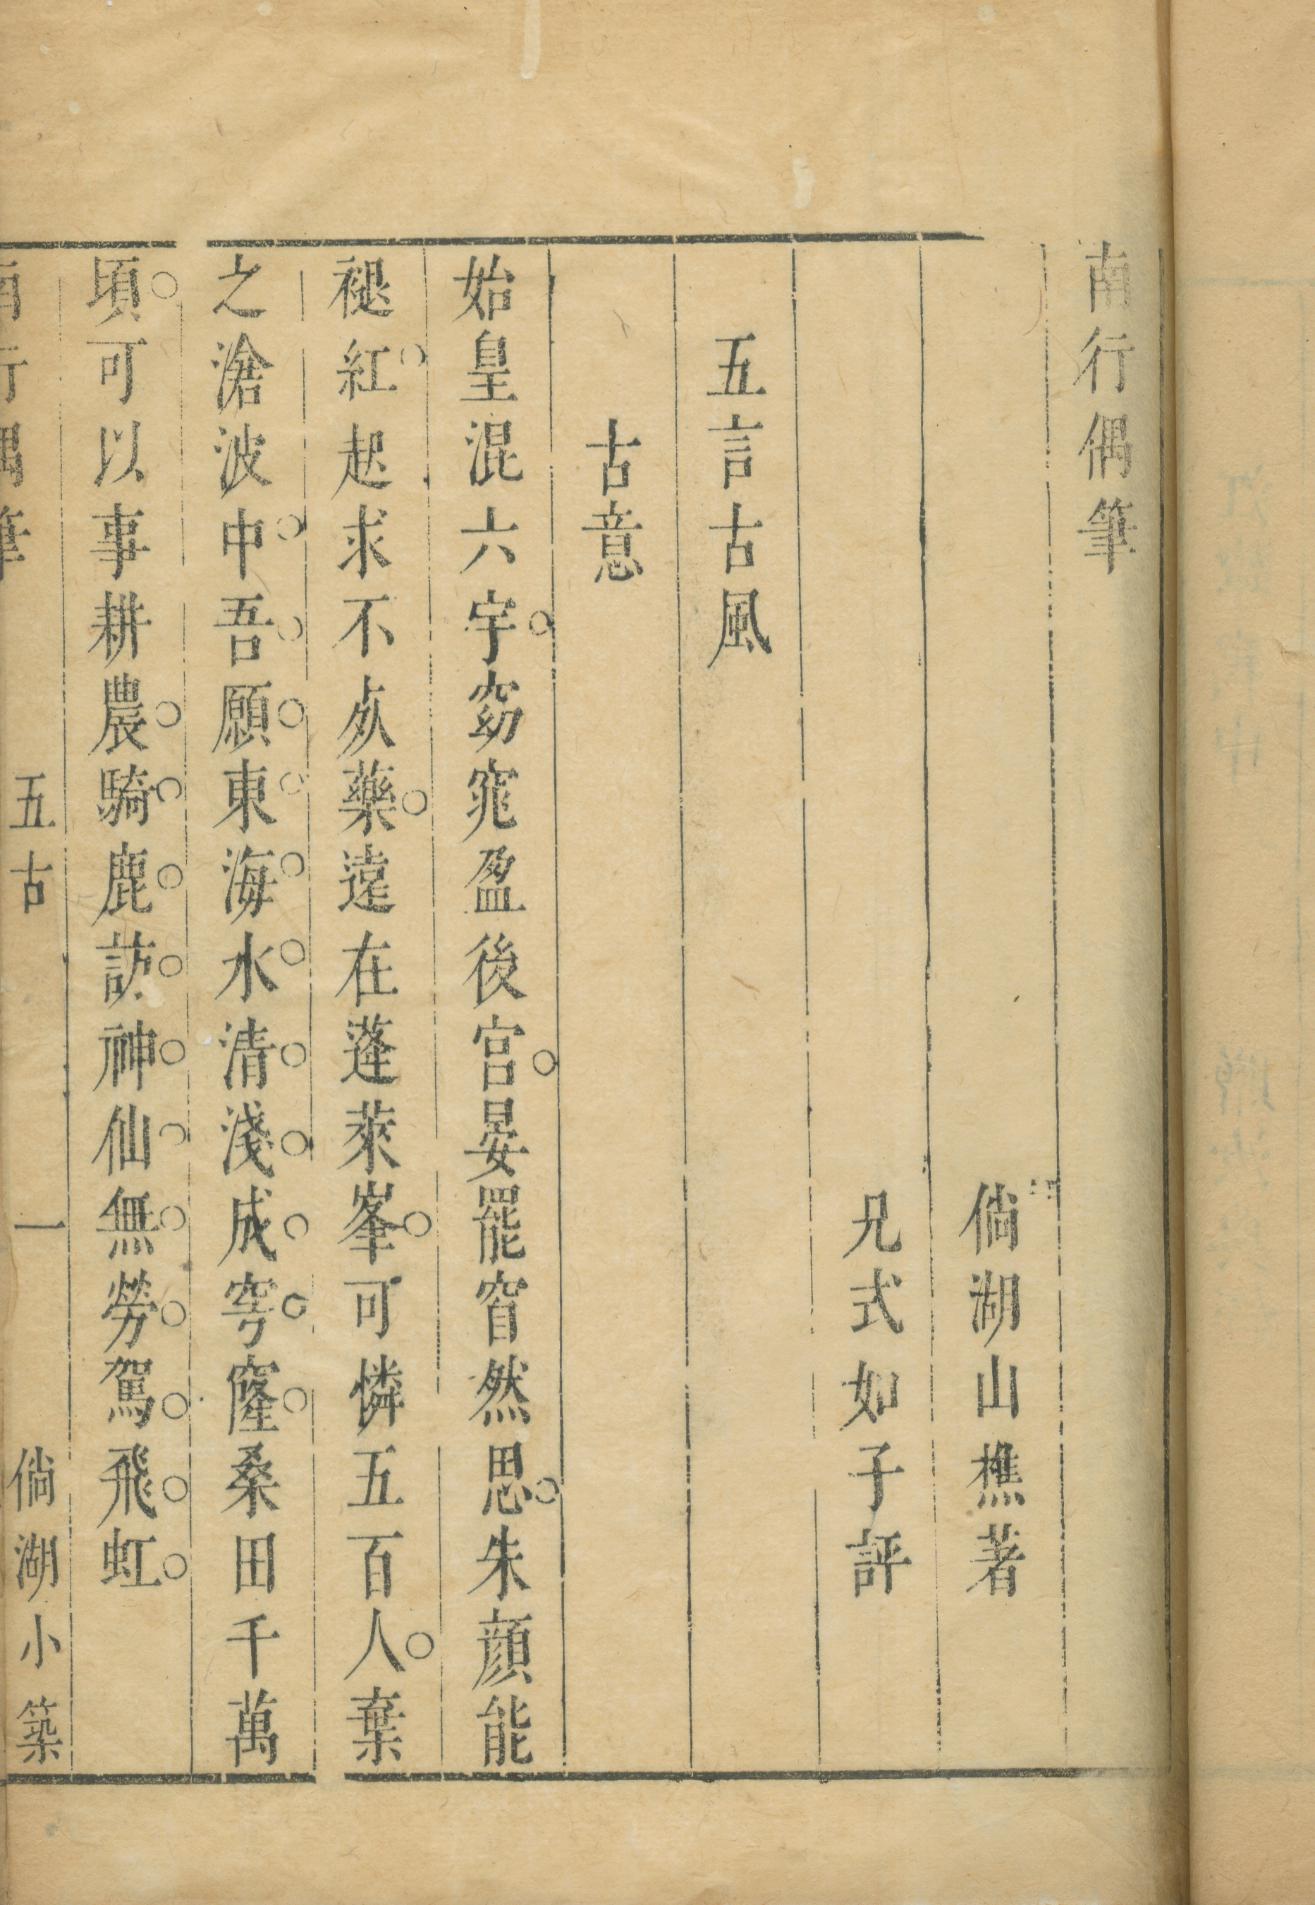 南行偶筆
倘湖山樵著
兄式如子評
五言古風
古意
始皇混六宇窈窕盈後宮晏罷窅然思朱顔能
褪紅起求不死藥遠在蓬萊峯可憐五百人棄
之滄波中吾願東海水清淺成穹窿桑田千萬
頃可以事耕農騎鹿訪神仙無勞駕飛虹
南行偶筆 五古 一 倘湖小築